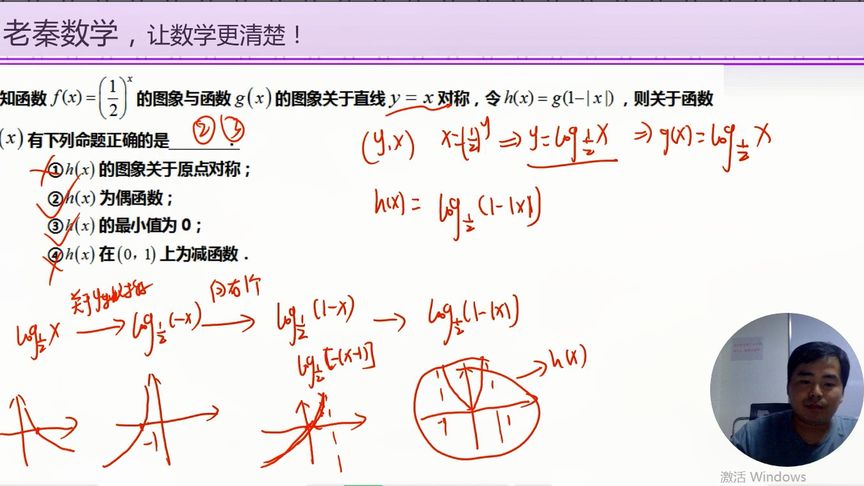 老秦数学，让数学更清楚！
知函数 f(x)=(1/2)^x 的图象与函数 g(x) 的图象关于直线 y=x 对称，令 h(x)=g(1-|x|)，则关于函数
(x) 有下列命题正确的是 ②③ .
①h(x) 的图象关于原点对称；
②h(x) 为偶函数；
③h(x) 的最小值为 0；
④h(x) 在 (0, 1) 上为减函数．
(y,x) x=(1/2)^y ⇒ y=log_{1/2} x ⇒ g(x)=log_{1/2} x
h(x)= log_{1/2}(1-|x|)
关于y轴对称 向右1个
log_{1/2} x → log_{1/2}(-x) → log_{1/2}(1-x) → log_{1/2}(1-|x|)
log_{1/2}[-(x-1)]
h(x)
-1 1 -1 1
激活 Windows